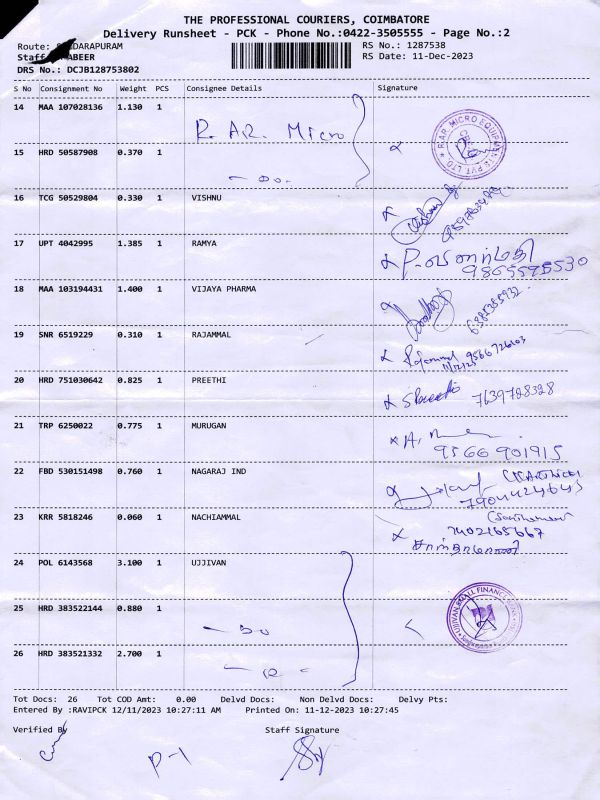 THE PROFESSIONAL COURIERS, COIMBATORE
Delivery Runsheet - PCK - Phone No.:0422-3505555 - Page No.:2
Route: DARAPURAM RS No.: 1287538
Staff ABEER RS Date: 11-Dec-2023
DRS No.: DCJB128753802
S No Consignment No Weight PCS Consignee Details Signature
14 MAA 107028136 1.130 1
R. AR. Micro
15 HRD 50587908 0.370 1
- Do.
16 TCG 50529804 0.330 1 VISHNU
17 UPT 4042995 1.385 1 RAMYA
9865595530
18 MAA 103194431 1.400 1 VIJAYA PHARMA
19 SNR 6519229 0.310 1 RAJAMMAL
20 HRD 751030642 0.825 1 PREETHI
7639728328
21 TRP 6250022 0.775 1 MURUGAN
9566901915
22 FBD 530151498 0.760 1 NAGARAJ IND
7904424645
23 KRR 5818246 0.060 1 NACHIAMMAL
7402165667
24 POL 6143568 3.100 1 UJJIVAN
25 HRD 383522144 0.880 1
26 HRD 383521332 2.700 1
Tot Docs: 26 Tot COD Amt: 0.00 Delvd Docs: Non Delvd Docs: Delvy Pts:
Entered By :RAVIPCK 12/11/2023 10:27:11 AM Printed On: 11-12-2023 10:27:45
Verified By Staff Signature
P-1